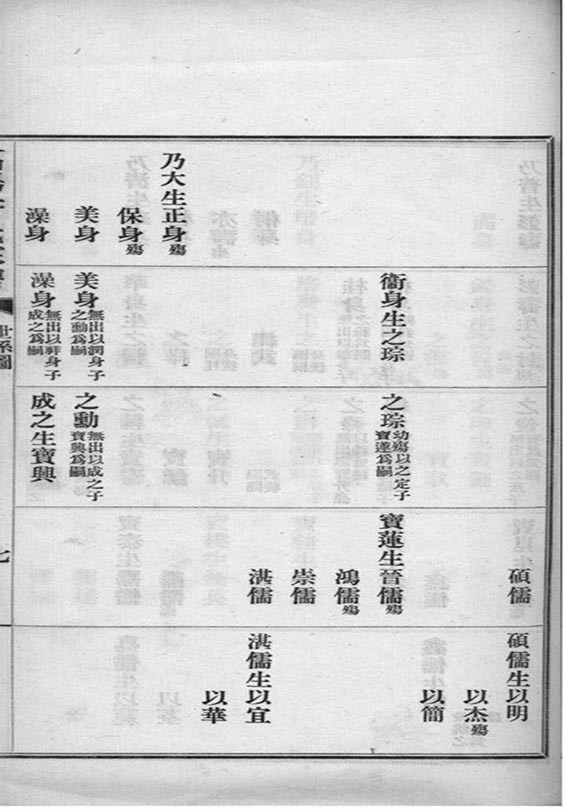 碩儒
寶蓮生晉儒殤
鴻儒殤
崇儒
湛儒
碩儒生以明
以杰殤
以簡
湛儒生以宜
以華
衞身生之琮
之琮幼殤以之定子
寶蓮爲嗣
乃大生正身殤
保身殤
美身
澡身
美身無出以潤身子
之勳爲嗣
澡身無出以祥身子
成之爲嗣
之勳無出以成之子
寶興爲嗣
成之生寶興
世系圖
七